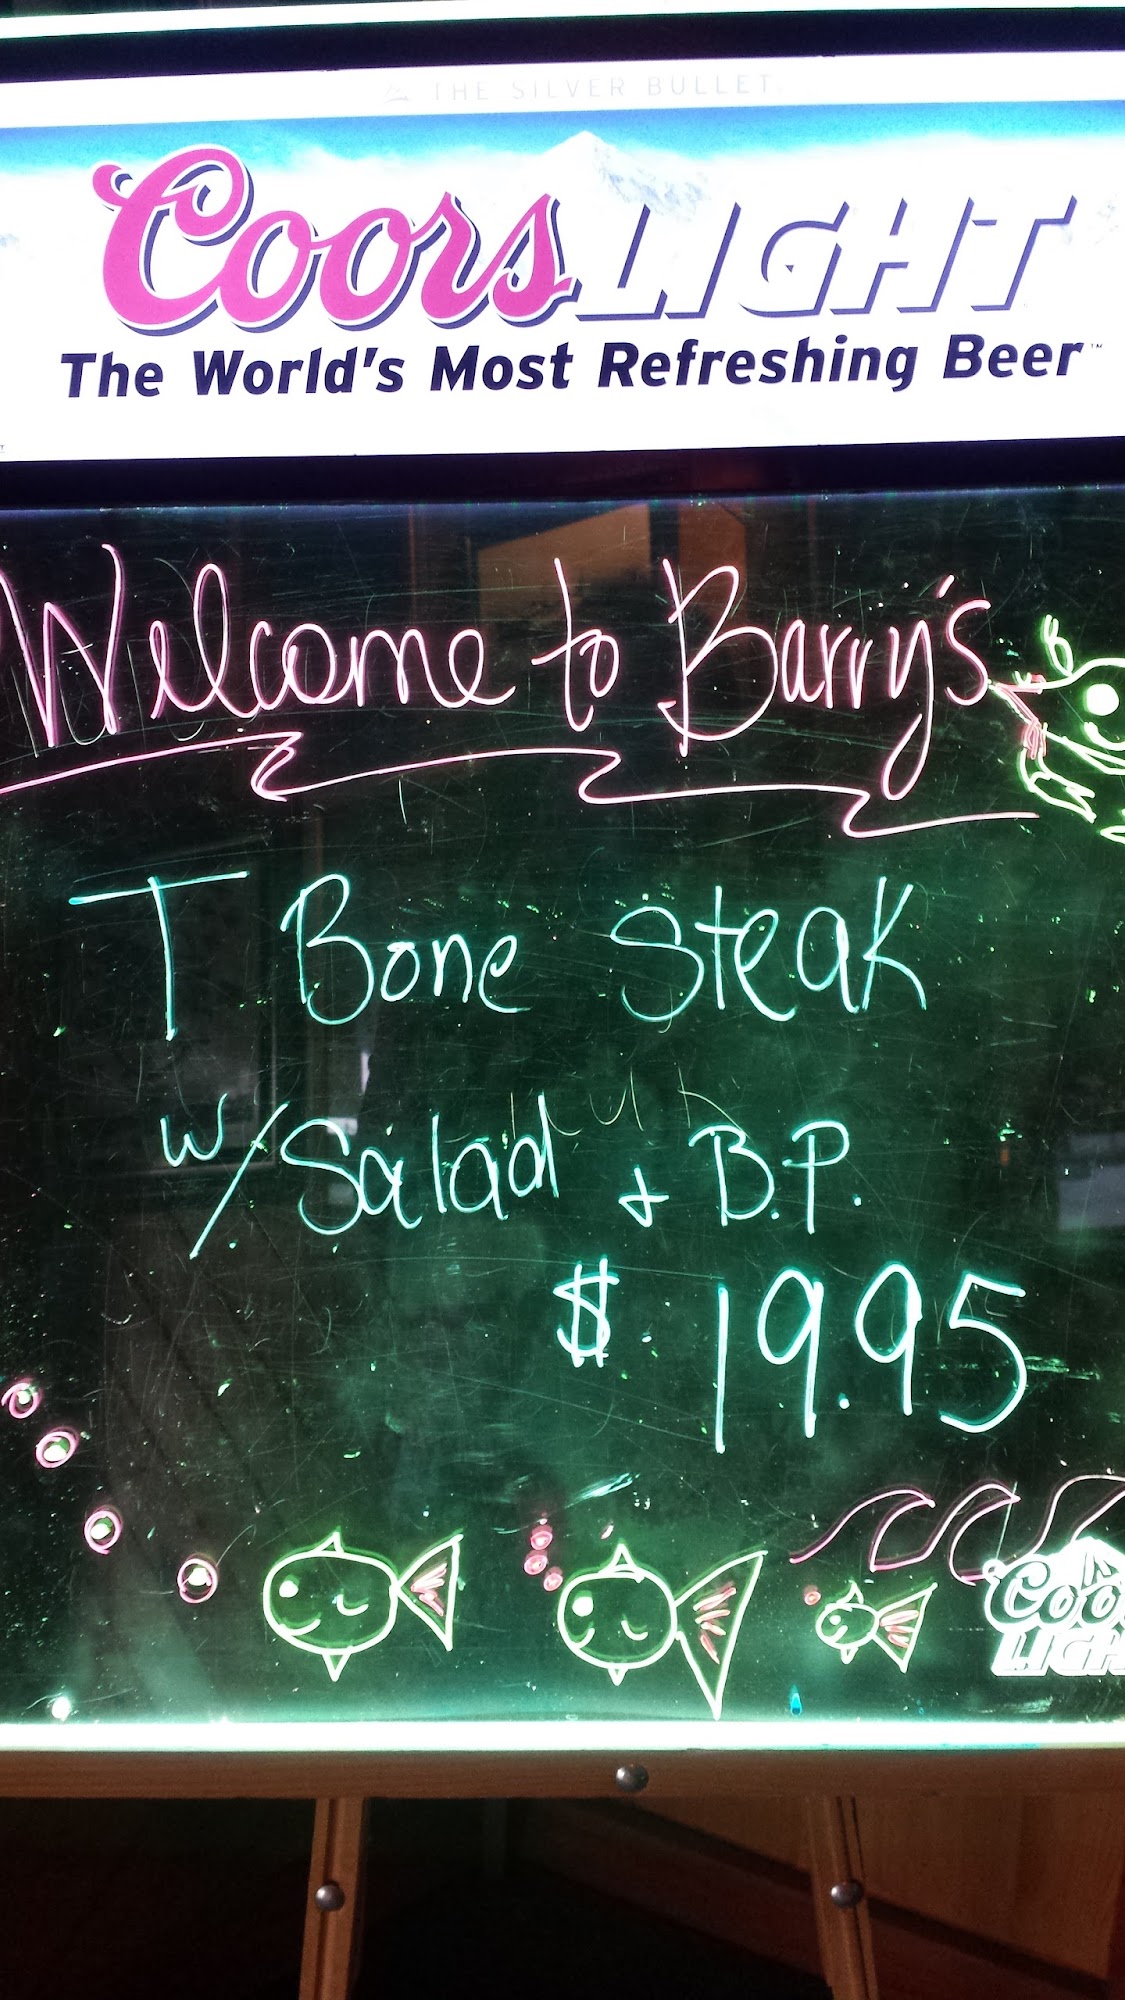 THE SILVER BULLET.
Coors LIGHT
The World's Most Refreshing Beer™
Welcome to Barry's
T Bone Steak
w/ Salad + B.P.
$ 19.95
Coo
LIGH